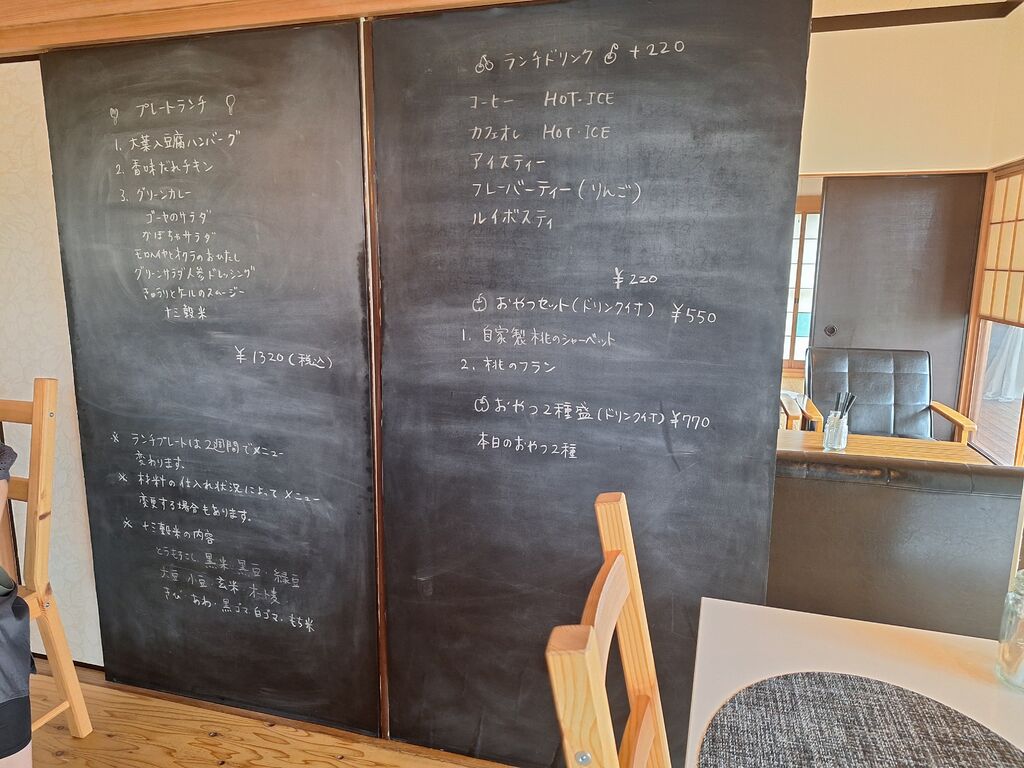 プレートランチ
1. 大葉入豆腐ハンバーグ
2. 香味だれチキン
3. グリーンカレー
ゴーヤのサラダ
かぼちゃサラダ
モロヘイヤとオクラのおひたし
グリーンサラダ人参ドレッシング
きゅうりとケールのスムージー
十三穀米
¥1320(税込)
※ ランチプレートは2週間でメニュー
変わります。
※ 材料の仕入れ状況によってメニュー
変更する場合もあります。
※ 十三穀米の内容
とうもろこし 黒米 黒豆・緑豆
大豆 小豆・玄米 オート麦
きび・あわ・黒ゴマ 白ゴマ・もち米
ランチドリンク +220
コーヒー HOT・ICE
カフェオレ HOT・ICE
アイスティー
フレーバーティー(りんご)
ルイボスティ
¥220
おやつセット(ドリンク付) ¥550
1. 自家製桃のシャーベット
2. 桃のフラン
おやつ2種盛(ドリンク付) ¥770
本日のおやつ2種